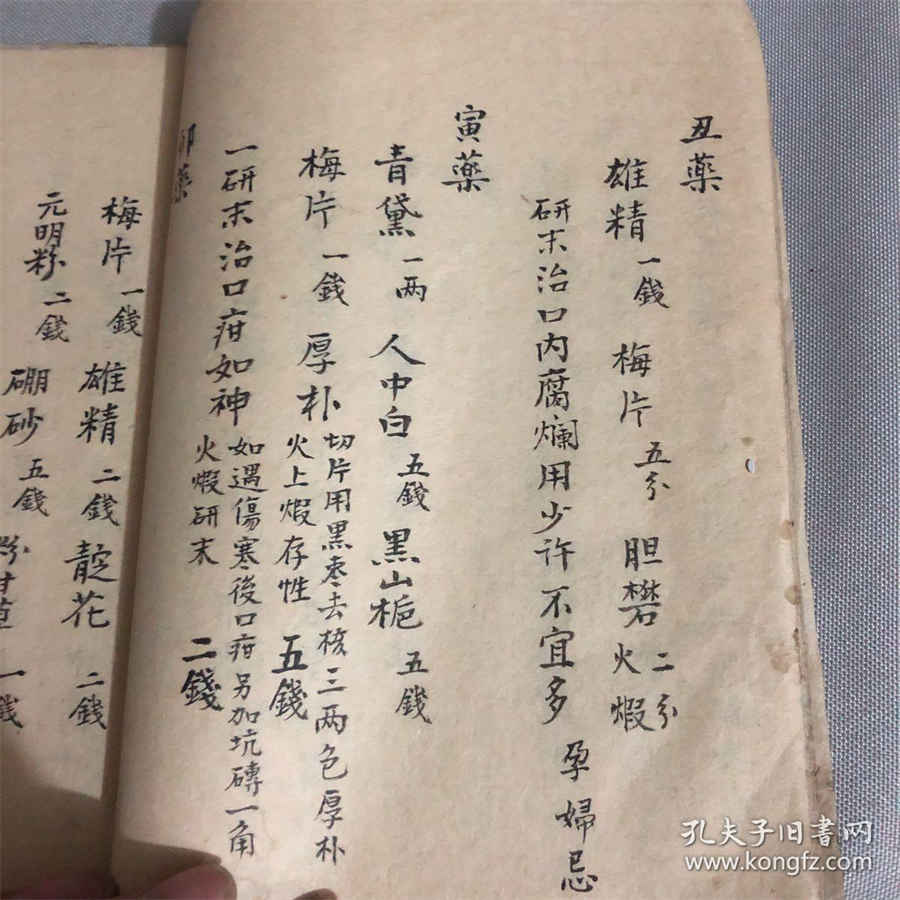 丑药
雄精 一錢 梅片 五分 胆礬 二分 火煆
研末治口内腐爛用少许不宜多 孕婦忌
寅药
青黛 一两 人中白 五錢 黑山栀 五錢
梅片 一錢 厚朴 切片用黑枣去核三两包厚朴火上煆存性 五錢
一研末治口疳如神 如遇傷寒後口疳另加坑磚一角火煆研末 二錢
卯药
梅片 一錢 雄精 二錢 靛花 二錢
元明粉 二錢 硼砂 五錢 粉甘草 一錢
孔夫子旧書网
www.kongfz.com